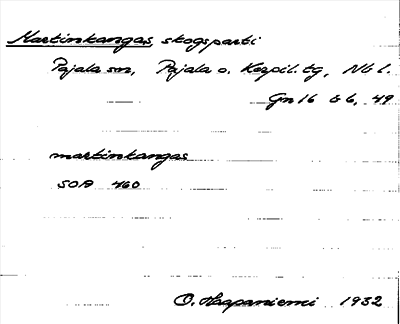 Martinkangas skogsparti
Pajala sn, Pajala o. Korpil. tg, Nb l.
Gn 16 & 6, 49
martinkangas
SOA 460
O. Haapaniemi 1932